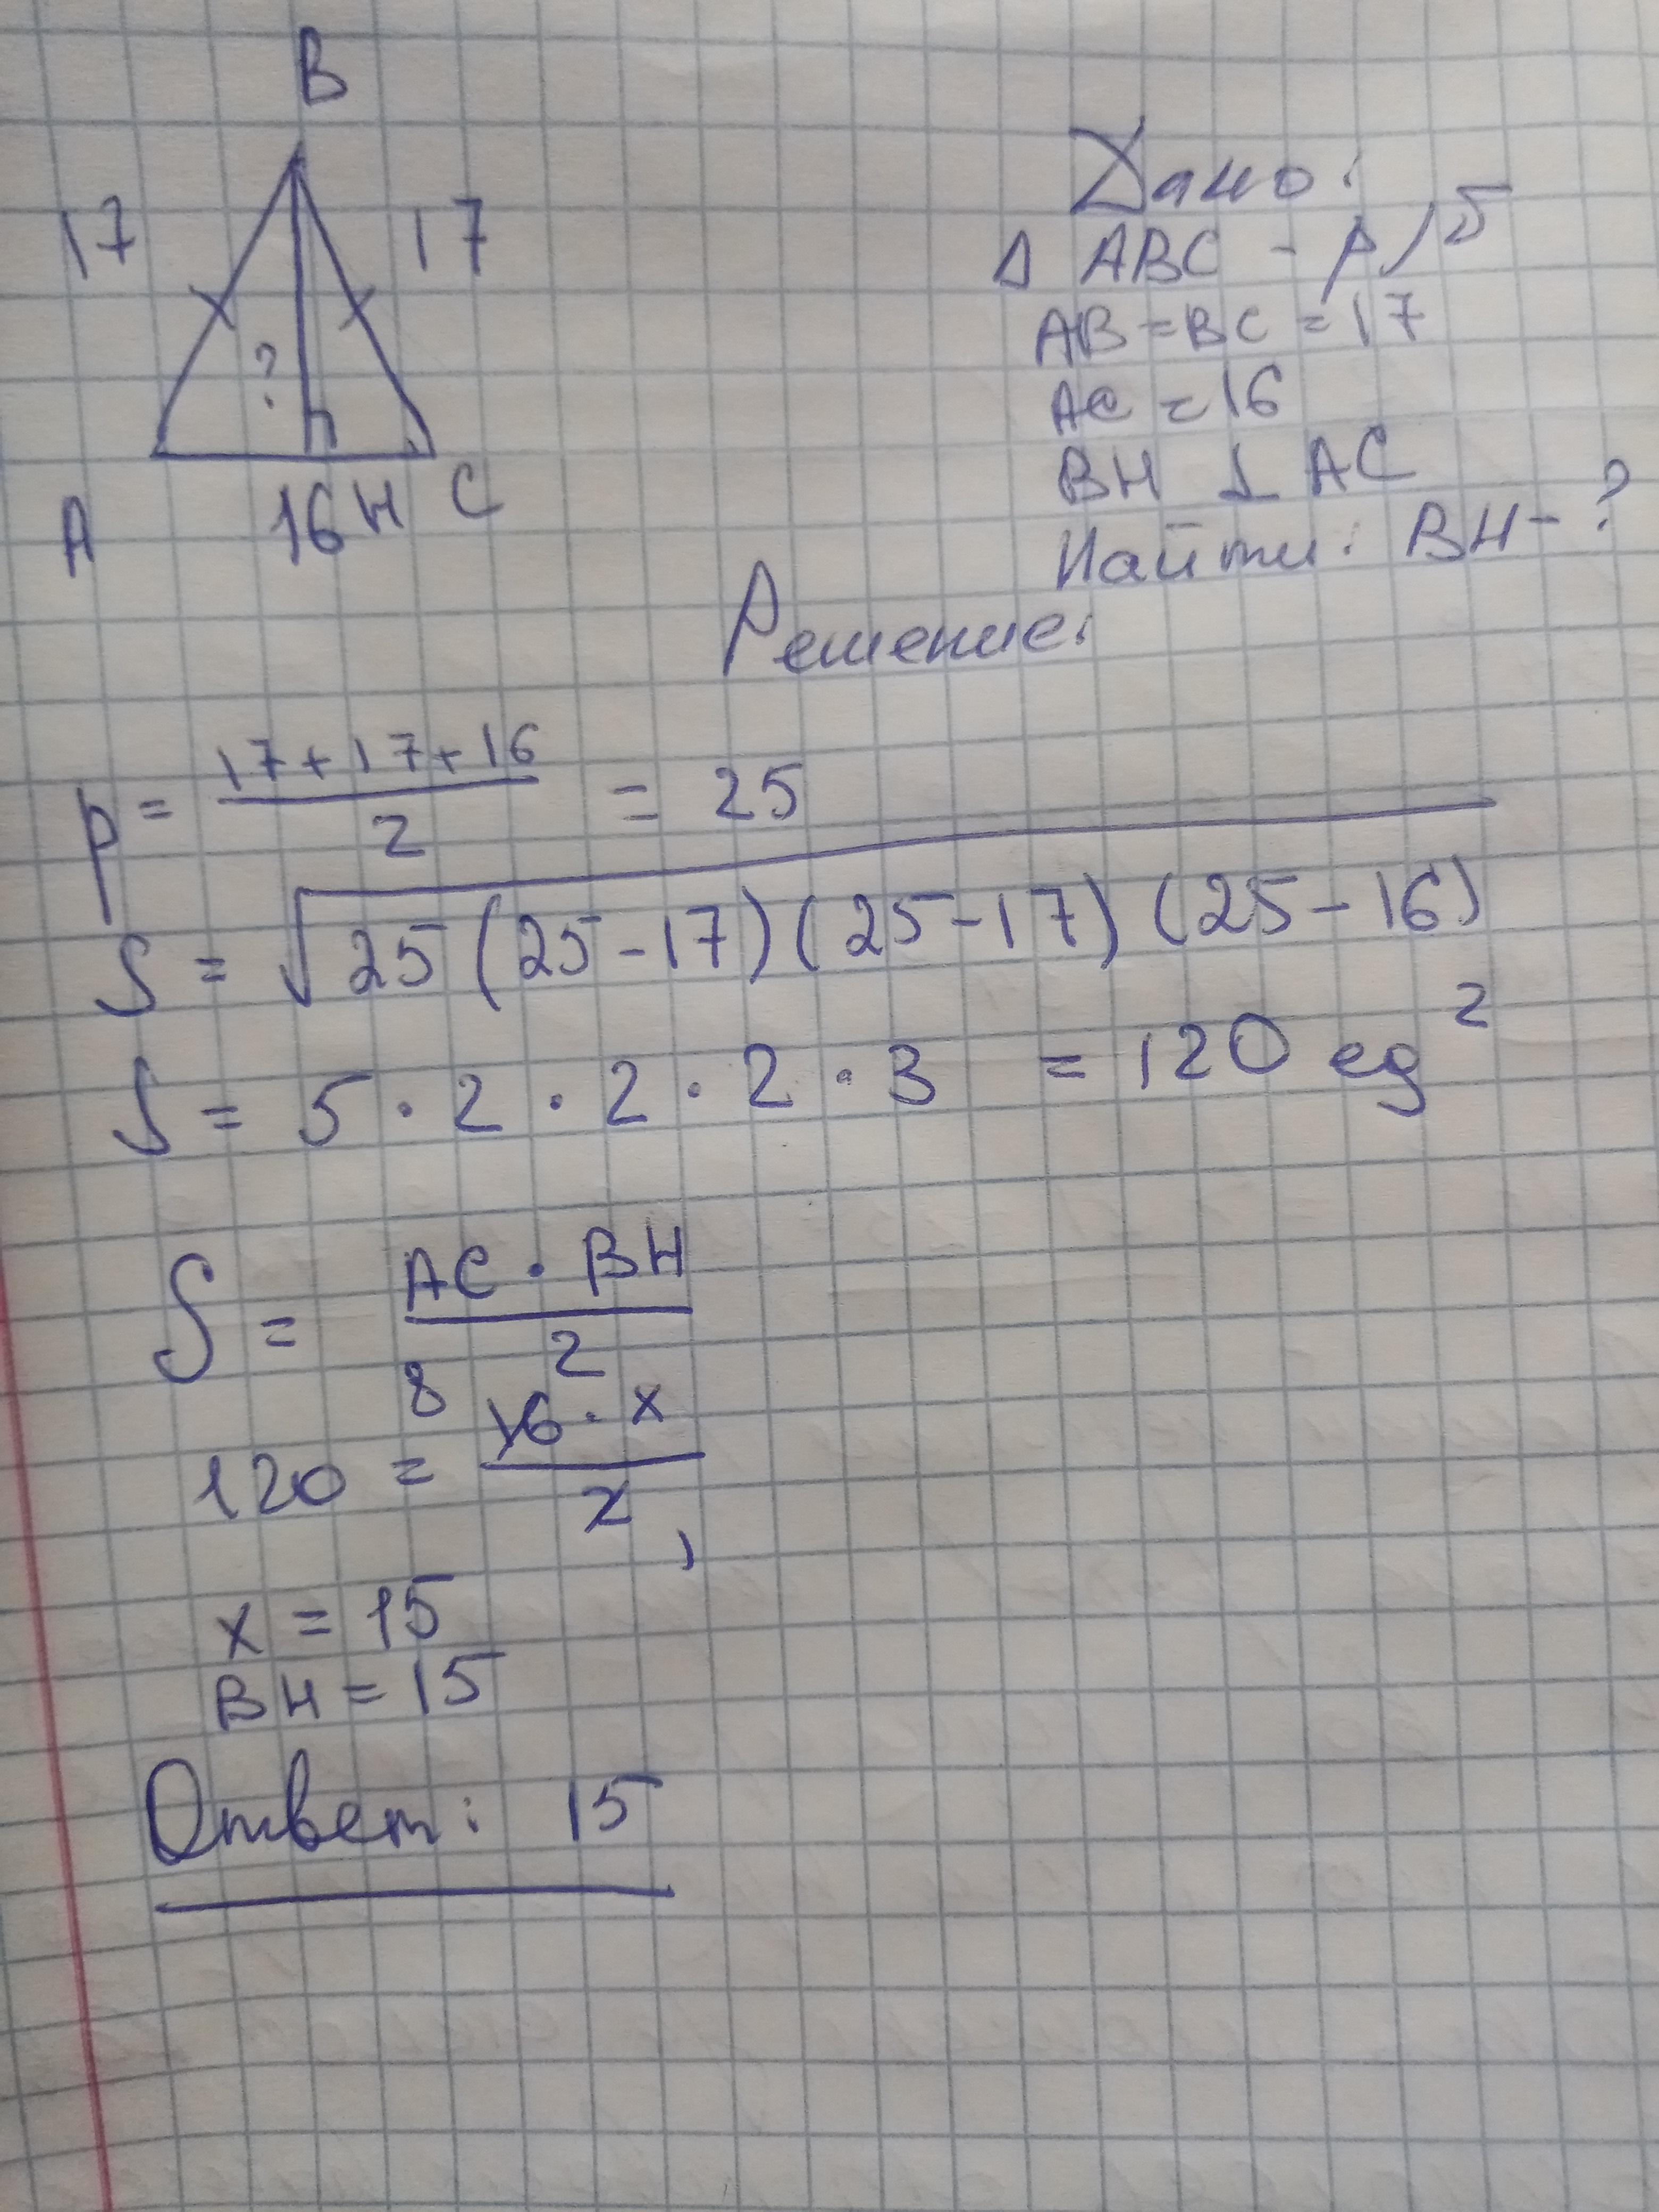 B
17 17
?
A 16 H C
Дано:
Δ ABC - р/б
AB = BC = 17
AC = 16
BH ⊥ AC
Найти: BH - ?
Решение:
p = (17 + 17 + 16) / 2 = 25
S = √(25 (25 - 17) (25 - 17) (25 - 16))
S = 5 · 2 · 2 · 2 · 3 = 120 ед²
S = (AC · BH) / 2
8
120 = (16 · x) / 2,
x = 15
BH = 15
Ответ: 15